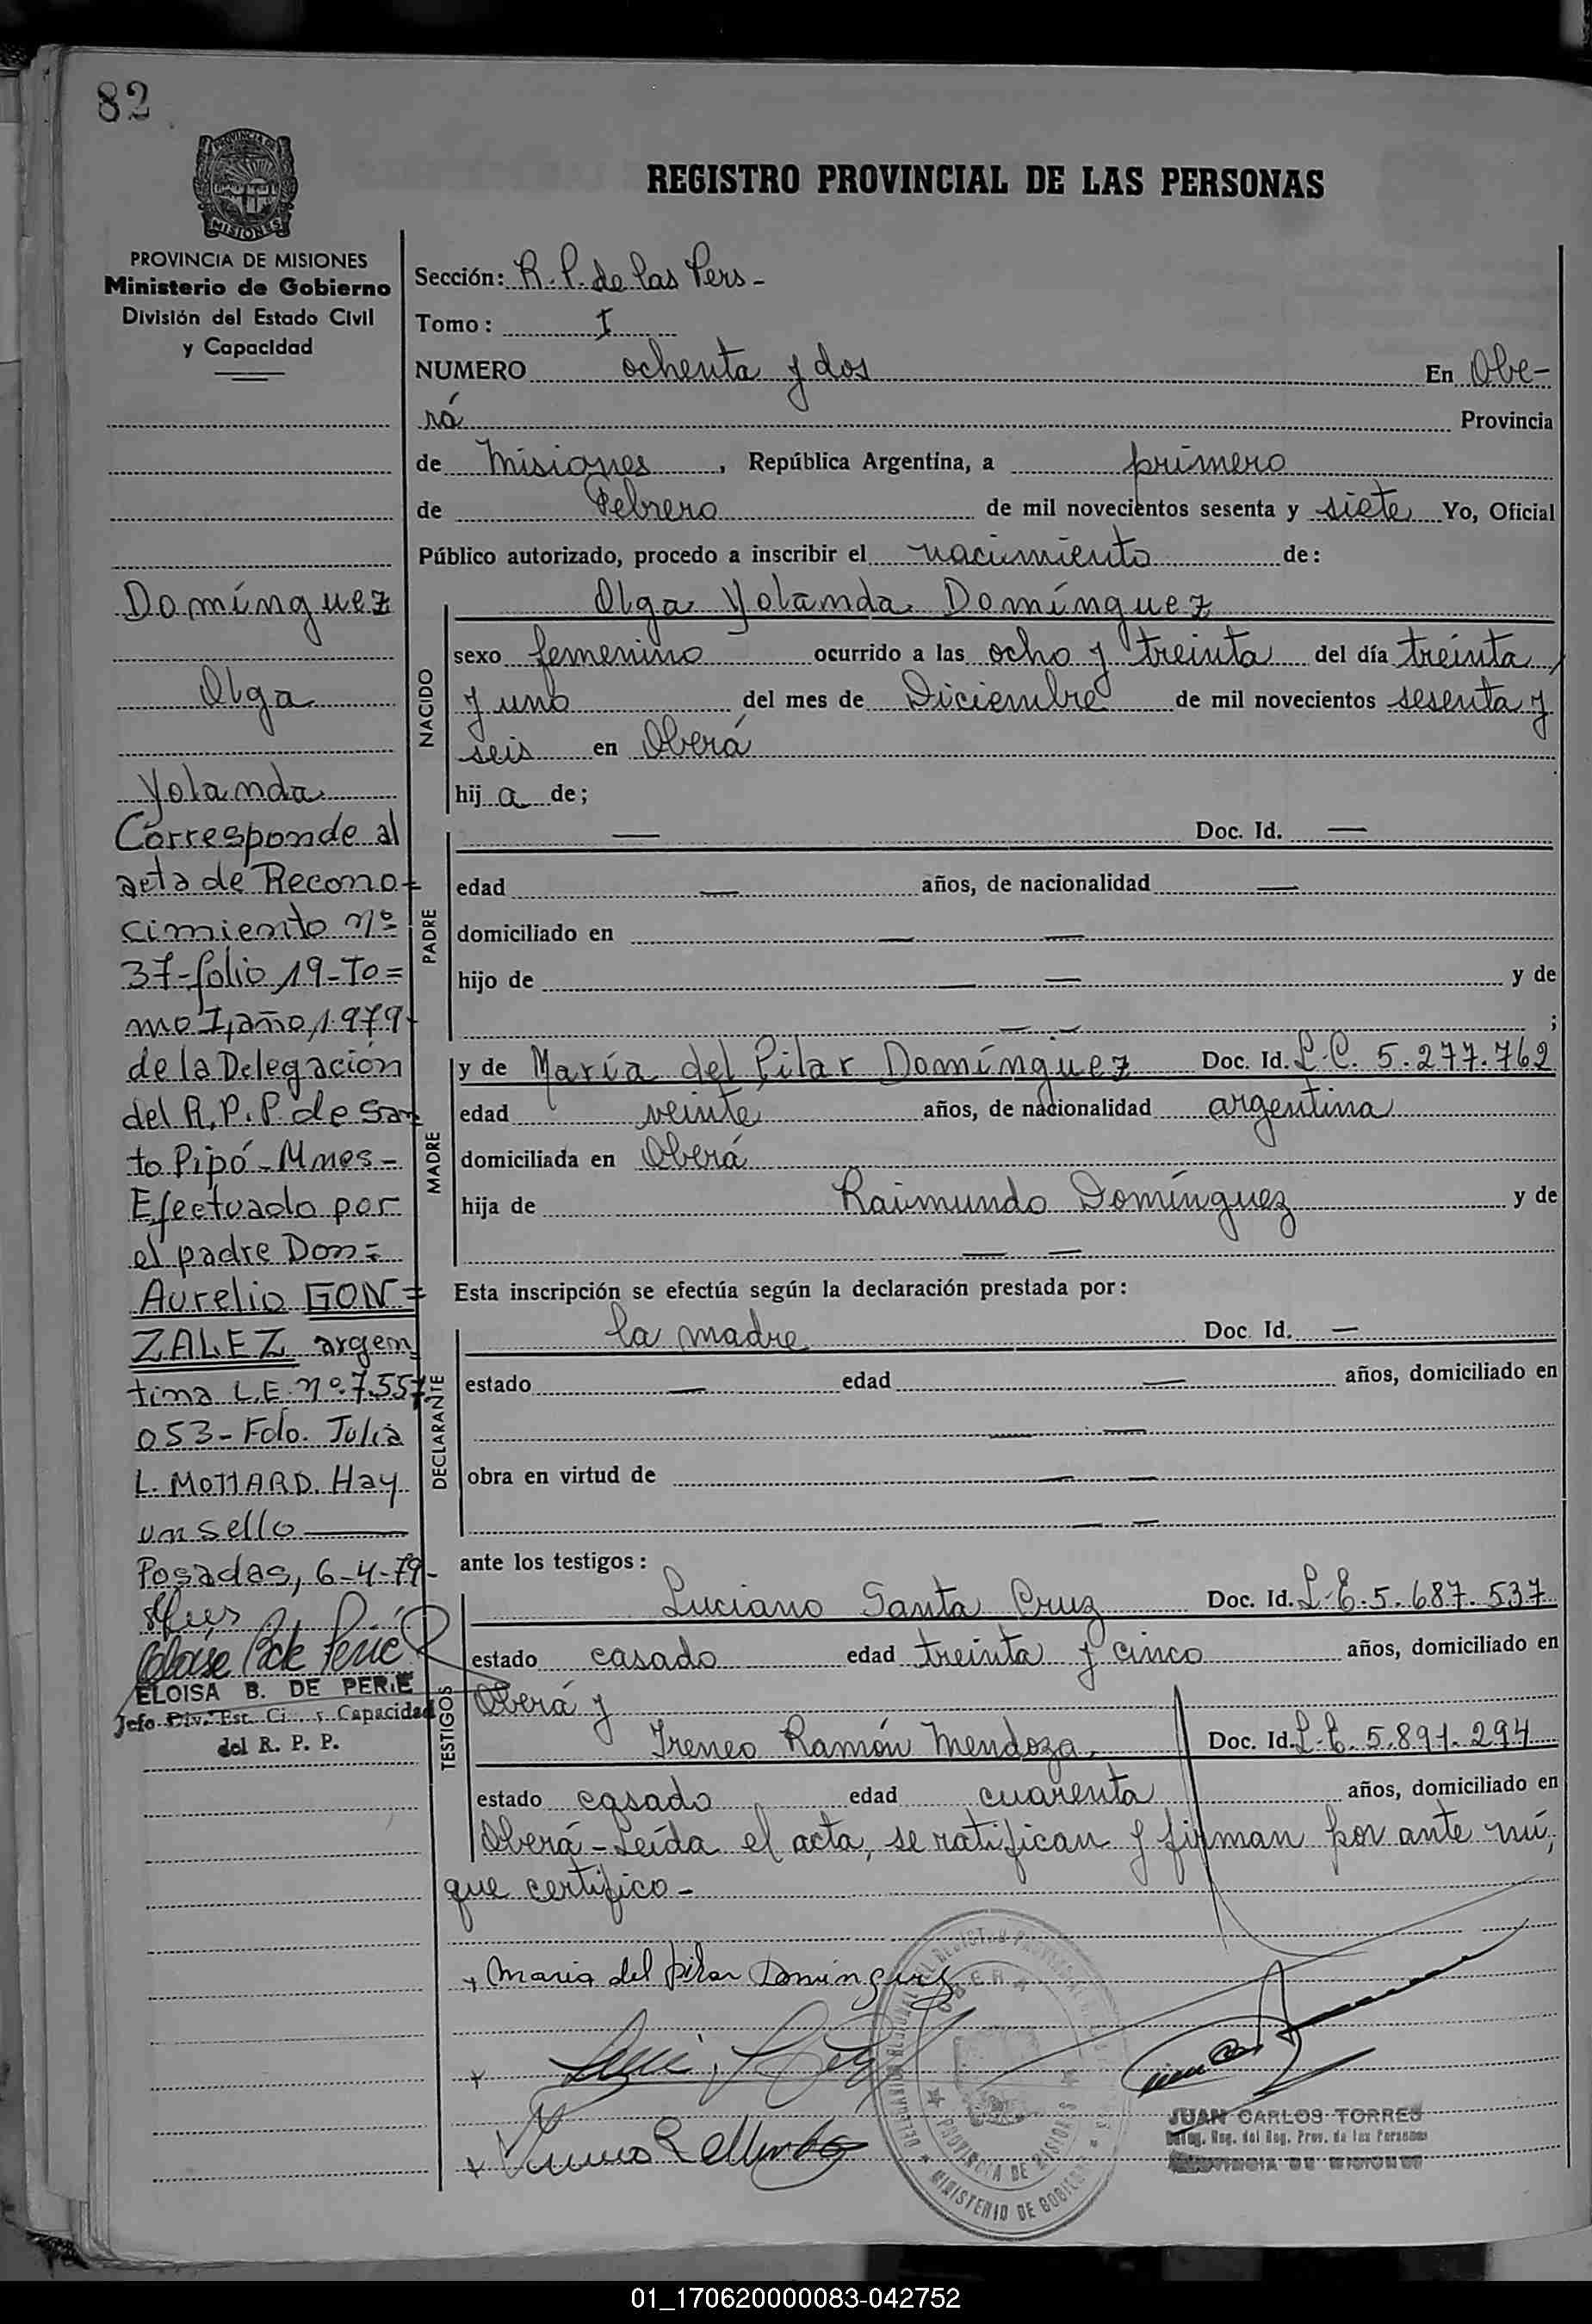 82
PROVINCIA DE
MISIONES
REGISTRO PROVINCIAL DE LAS PERSONAS
PROVINCIA DE MISIONES
Ministerio de Gobierno
División del Estado Civil
y Capacidad
Domínguez
Olga
Yolanda
Corresponde al
acta de Recono=
cimiento nº
37-folio 19-To=
mo I, año 1979-
de la Delegación
del R.P.P. de San
to Pipó-Mnes-
Efectuado por
el padre Don=
Aurelio GON=
ZALEZ argen
tina L.E. nº 7.557
053-Fdo. Julia
L. MOTTARD. Hay
un sello
Posadas, 6-4-79-
ELOISA B. DE PERIE
Jefe Div. Est. Ci. y Capacidad
del R. P. P.
Sección: R. P. de las Pers-
Tomo: I
NUMERO ochenta y dos En Obe-
rá Provincia
de Misiones, República Argentina, a primero
de Febrero de mil novecientos sesenta y siete Yo, Oficial
Público autorizado, procedo a inscribir el nacimiento de:
NACIDO
Olga Yolanda Domínguez
sexo femenino ocurrido a las ocho y treinta del día treinta
y uno del mes de Diciembre de mil novecientos sesenta y
seis en Oberá
hija de;
PADRE
— Doc. Id. —
edad — años, de nacionalidad —
domiciliado en — —
hijo de — — y de
— — ;
MADRE
y de María del Pilar Domínguez Doc. Id. L.C. 5.277.762
edad veinte años, de nacionalidad argentina
domiciliada en Oberá
hija de Raimundo Domínguez y de
— —
Esta inscripción se efectúa según la declaración prestada por:
DECLARANTE
la madre Doc. Id. —
estado — edad — años, domiciliado en
— —
obra en virtud de — —
— —
ante los testigos:
TESTIGOS
Luciano Santa Cruz Doc. Id. L.E. 5.687.537
estado casado edad treinta y cinco años, domiciliado en
Oberá y
Ireneo Ramón Mendoza Doc. Id. L.E. 5.891.294
estado casado edad cuarenta años, domiciliado en
Oberá-Leída el acta, se ratifican y firman por ante mí,
que certifico-
x Maria del pilar Dominguez
x
x
OBERA
PROVINCIA DE MISIONES
MINISTERIO DE GOBIERNO
JUAN CARLOS TORRES
Deleg. Reg. del Reg. Prov. de las Personas
PROVINCIA DE MISIONES
01_170620000083-042752